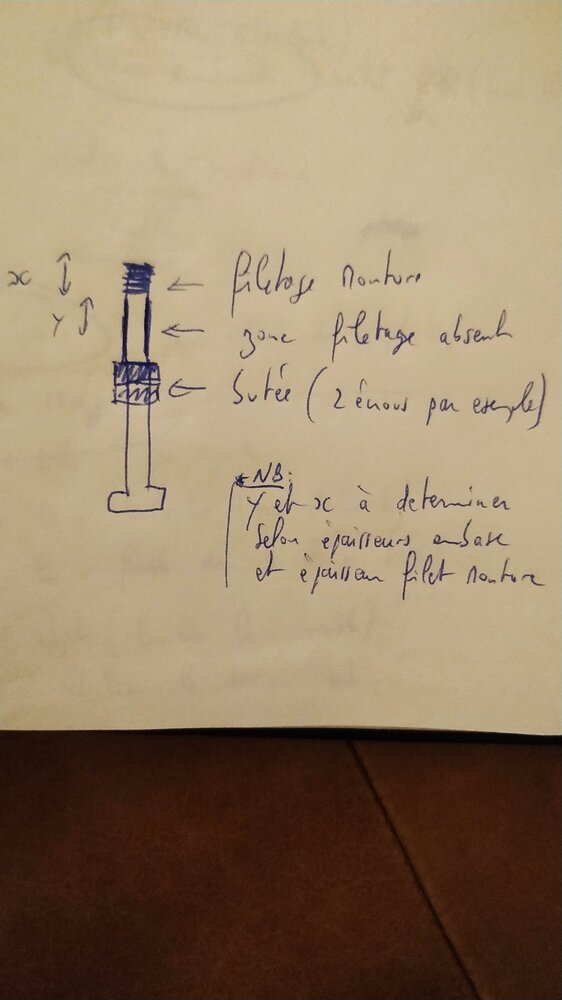 x
filetage monture
Y
zone filetage absent
butée (2 écrous par exemple)
* NB:
Y et x à determiner
selon épaisseurs embase
et épaisseur filet monture